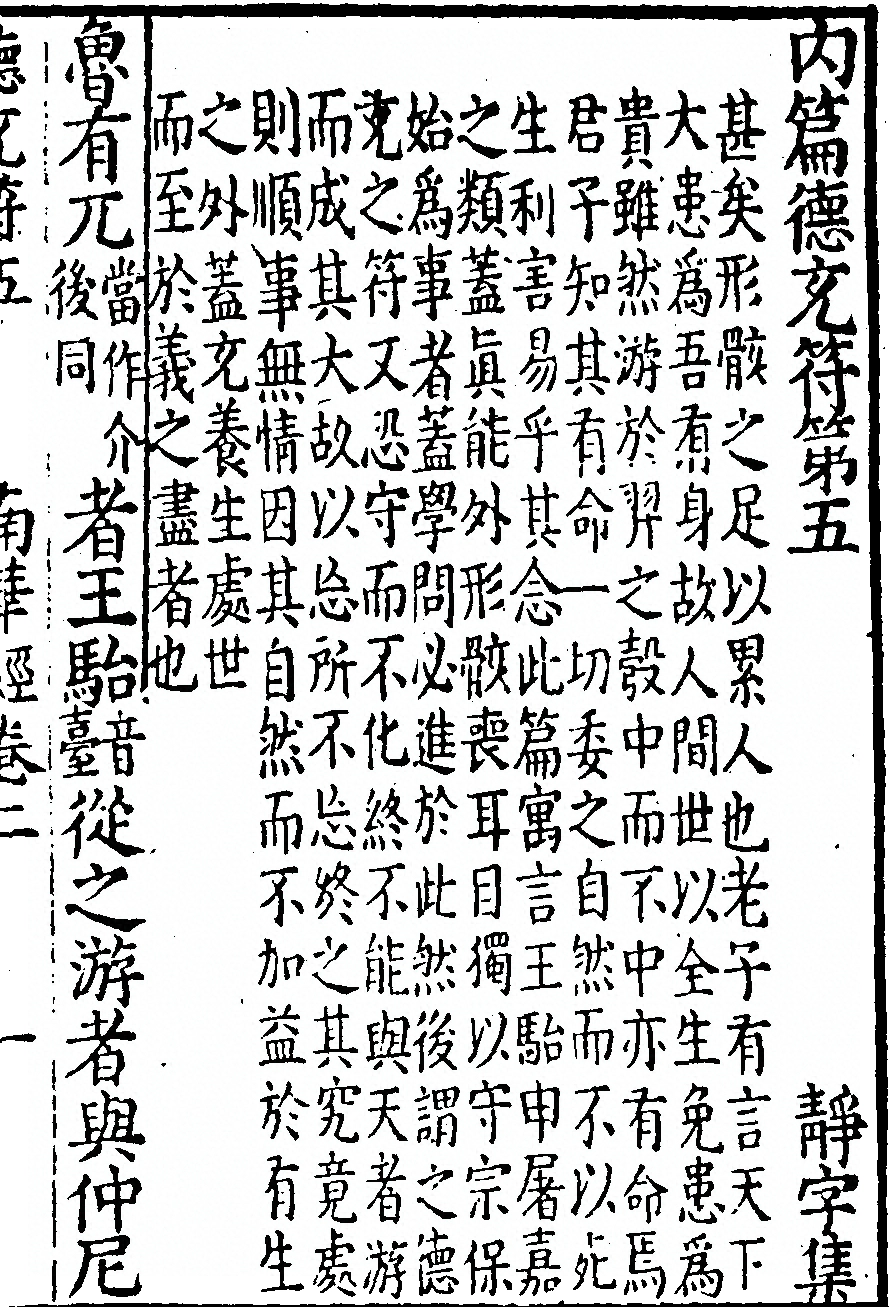 內篇德充符第五 靜字集
甚矣形骸之足以累人也老子有言天下
大患爲吾有身故人間世以全生免患爲
貴雖然游於羿之彀中而不中亦有命焉
君子知其有命一切委之自然而不以死
生利害易乎其念此篇寓言王駘申屠嘉
之類蓋眞能外形骸喪耳目獨以守宗保
始爲事者蓋學問必進於此然後謂之德
充之符又恐守而不化終不能與天者游
而成其大故以忘所不忘終之其究竟處
則順事無情因其自然而不加益於有生
之外蓋充養生處世
而至於義之盡者也
魯有兀當作介後同者王駘音臺從之游者與仲尼
德充符五 南華經卷二 一